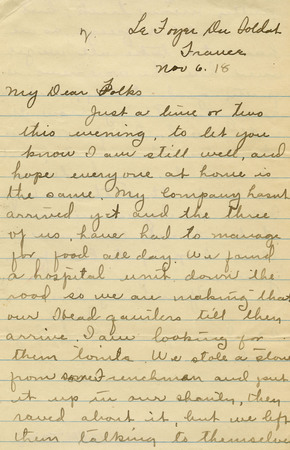 Le Foyer Du Soldat
France
Nov 6. 18
My Dear Folks
Just a line or two
this evening, to let you
know I am still well, and
hope everyone at home is
the same. My Company hasnt
arrived yet and the three
of us, have had to manage
for food all day. We found
a hospital unit down the
road so we are making that
our Head quaiters till they
arrive. I am looking for
them tonite. We stole a stove
from some Frenchman and put
it up in our shanty, they
raved about it, but we left
them talking to themselves